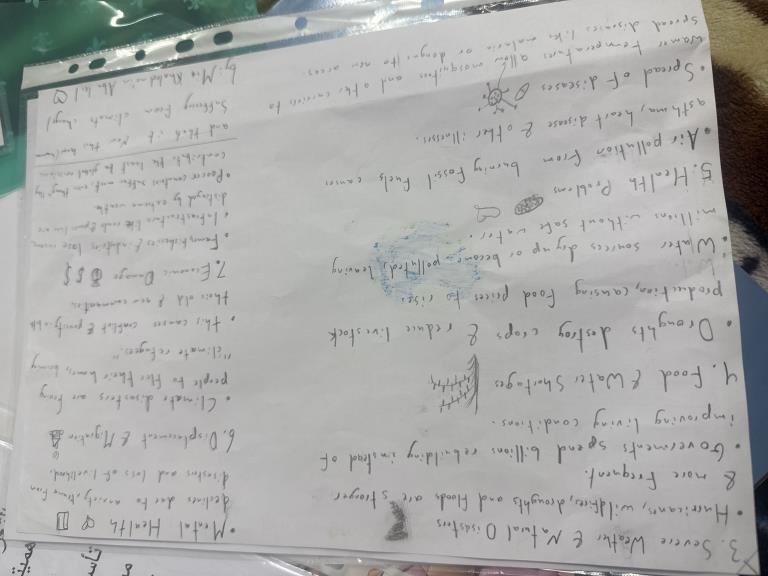 3. Severe Weather & Natural Disasters
• Hurricanes, wildfires, droughts and floods are stronger
& more frequent.
• Goverments spend billions rebuilding instead of
improving living conditions.
4. Food & Water Shortages
• Droughts destroy crops & reduce livestock
production, causing food prices to rise.
• Water sources dry up or become polluted, leaving
millions without safe water.
5. Health Problems
• Air pollution from burning fossil fuels causes
asthma, heart disease & other illnesses.
• Spread of diseases
Warmer temperatures allow mosquitoes and other carriers to
spread diseases like malaria or dengue to new areas.
• Mental Health
declines due to anxiety, trauma from
disasters and loss of livelihood.
6. Displacement & Migration
• Climate disasters are forcing
people to flee their homes, becoming
"climate refugees".
• this causes conflict & poverty in both
their old & new communities.
7. Economic Damage $ $
• Farms, fisheries & industries lose income
• Infrastructure like roads & power lines are
destroyed by extreme weather
• Poorer countries suffer most even though they
contribute the least to global
and that is how the humans
suffering from climate change!
by: Miss